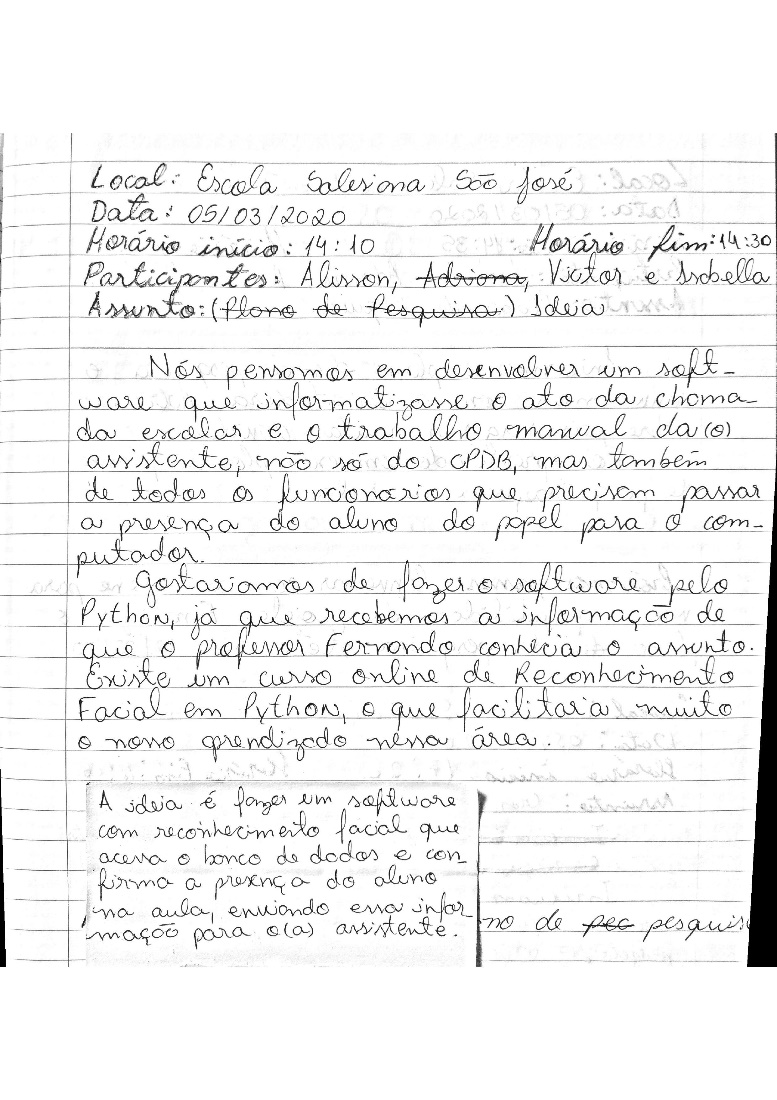 Local: Escola Salesiana São José
Data: 05/03/2020
Horário início: 14:10 Horário fim: 14:30
Participantes: Alisson, Adriana, Victor e Isabella
Assunto: (Plano de Pesquisa) Ideia
Nós pensamos em desenvolver um soft-
ware que informatizasse o ato da chama-
da escolar e o trabalho manual da(o)
assistente, não só do CPDB, mas também
de todos os funcionarios que precisam passar
a presença do aluno do papel para o com-
putador.
Gostariamos de fazer o software pelo
Python, já que recebemos a informação de
que o professor Fernando conhecia o assunto.
Existe um curso online de Reconhecimento
Facial em Python, o que facilitaria muito
o nosso aprendizado nessa área.
A ideia é fazer um software
com reconhecimento facial que
acessa o banco de dados e con-
firma a presença do aluno
na aula, enviando essa infor-
mação para o(a) assistente.
no de pec pesquis